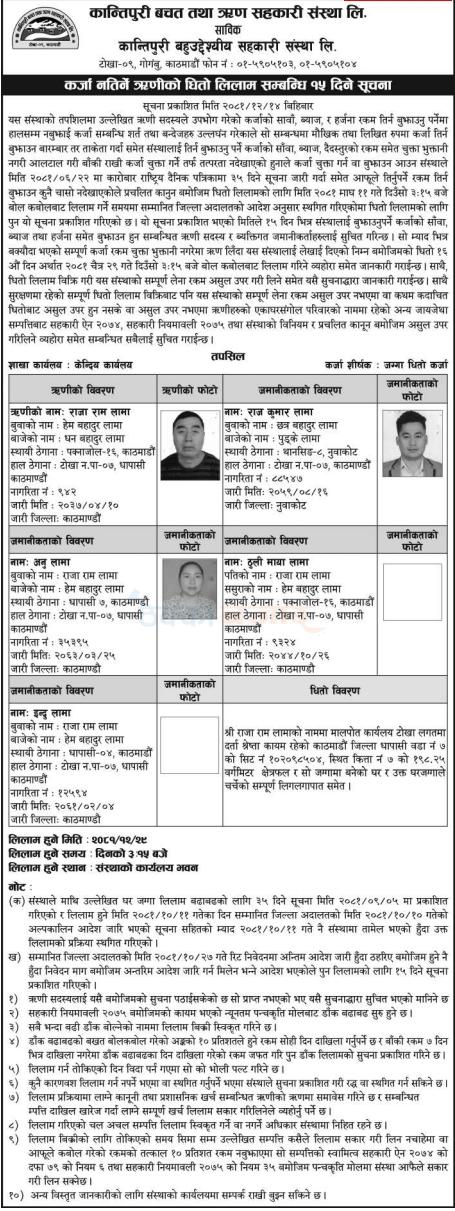 कान्तिपुरी बचत तथा ऋण सहकारी संस्था लि.
साविक
कान्तिपुरी बहुउद्देश्यीय सहकारी संस्था लि.
टोखा-०९, गोगंबु, काठमाडौं फोन नं ०१-५९०५१०३, ०१-५९०५१०४
कर्जा नतिर्ने ऋणीको धितो लिलाम सम्बन्धि १५ दिने सूचना
सूचना प्रकाशित मिति २०८१/१२/१४ बिहिबार
यस संस्थाको तपशिलमा उल्लेखित ऋणी सदस्यले उपभोग गरेको कर्जाको सावाँ, ब्याज, र हर्जना रकम तिर्न बुभाउनु पर्नेमा
हालसम्म नबुझाई कर्जा सम्बन्धि शर्त तथा बन्देजहरु उल्लघंन गरेकाले सो सम्बन्धमा मौखिक तथा लिखित रुपमा कर्जा तिर्न
बुभाउन बारम्बार तर ताकेता गर्दा समेत संस्थालाई तिर्न बुभाउनु पर्ने कर्जाको सावाँ, ब्याज, दैदस्तुरको रकम समेत चुक्ता भुक्तानी
नगरी आलटाल गरी बाँकी राखी कर्जा चुक्ता गर्ने तर्फ तत्परता नदेखाएको हुनाले कर्जा चुक्ता गर्न वा बुभाउन आउन संस्थाले
मिति २०८१/०६/२२ मा कारोबार राष्ट्रिय दैनिक पत्रिकामा ३५ दिने सूचना जारी गर्दा समेत आफूले तिर्नुपर्ने रकम तिर्न
बुभाउन कुनै चासो नदेखाएकोले प्रचलित कानुन बमोजिम धितो लिलामको लागि मिति २०८१ माघ ११ गते दिउँसो ३:१५ बजे
बोल कबोलबाट लिलाम गर्ने समयमा सम्मानित जिल्ला अदालतको आदेश अनुसार स्थगित गरिएकोमा धितो लिलामको लागि
पुन यो सूचना प्रकाशित गरिएको छ । यो सूचना प्रकाशित भएको मितिले १५ दिन भित्र संस्थालाई बुभाउनुपर्ने कर्जाको साँवा,
ब्याज तथा हर्जना समेत बुभाउन हुन सम्बन्धित ऋणी सदस्य र ब्यक्तिगत जमानीकर्ताहरुलाई सुचित गरिन्छ । सो म्याद भित्र
बक्यौदा भएको सम्पूर्ण कर्जा रकम चुक्ता भुक्तानी नगरेमा ऋण लिँदा यस संस्थालाई लेखाई दिएको निम्न बमोजिमको धितो १६
औं दिन अर्थात २०८१ चैत्र २९ गते दिउँसो ३:१५ बजे बोल कबोलबाट लिलाम गरिने व्यहोरा समेत जानकारी गराईन्छ । साथै,
धितो लिलाम विक्रि गरी यस संस्थाको सम्पूर्ण लेना रकम असुल उपर गरी लिने समेत यसै सूचनाद्वारा जानकारी गराईन्छ । साथै
सुरक्षणमा रहेको सम्पूर्ण धितो लिलाम विक्रिबाट पनि यस संस्थाको सम्पूर्ण लेना रकम असुल उपर नभएमा वा कथम कदाचित
धितोबाट असुल उपर हुन नसके वा असुल उपर नभएमा ऋणीहरुको एकाघरसंगोल परिवारको नाममा रहेको अन्य जायजेथा
सम्पत्तिबाट सहकारी ऐन २०७४, सहकारी नियमावली २०७५ तथा संस्थाको विनियम र प्रचलित कानून बमोजिम असुल उपर
गरिलिने व्यहोरा समेत सम्बन्धित सबैलाई सुचित गराईन्छ ।
तपसिल
शाखा कार्यालय : केन्द्रिय कार्यालय कर्जा शीर्षक : जग्गा धितो कर्जा
ऋणीको विवरण ऋणीको फोटो जमानीकताको विवरण जमानीकताको फोटो
ऋणीको नामः राजा राम लामा
बुवाको नाम : हेम बहादुर लामा
बाजेको नाम : धन बहादुर लामा
स्थायी ठेगाना : पक्नाजोल-१६, काठमाडौं
हाल ठेगाना : टोखा न.पा-०७, धापासी
काठमाण्डौं
नागरिता नं : ९४२
जारी मिति : २०३७/०४/१०
जारी जिल्लाः काठमाण्डौं
नामः राज कुमार लामा
बुवाको नाम : छत्र बहादुर लामा
बाजेको नाम : पुड्के लामा
स्थायी ठेगाना : थानसिङ-८, नुवाकोट
हाल ठेगाना : टोखा न.पा-०७, धापासी
काठमाण्डौं
नागरिता नं. : ८८५४७
जारी मितिः २०५९/०८/१६
जारी जिल्लाः नुवाकोट
जमानीकताको विवरण जमानीकताको फोटो जमानीकताको विवरण जमानीकताको फोटो
नामः अनु लामा
बुवाको नाम : राजा राम लामा
बाजेको नाम : हेम बहादुर लामा
स्थायी ठेगाना : धापासी ७, काठमाण्डौ
हाल ठेगाना : टोखा न.पा-०७, धापासी
काठमाण्डौं
नागरिता नं : ३५३९५
जारी मितिः २०६३/०३/२५
जारी जिल्लाः काठमाण्डौ
नामः ठुली माया लामा
पतिको नाम : राजा राम लामा
ससुराको नाम : हेम बहादुर लामा
स्थायी ठेगाना : पक्नाजोल-१६, काठमाडौं
हाल ठेगाना : टोखा न.पा-०७, धापासी
काठमाण्डौं
नागरिता नं : ९३२४
जारी मितिः २०४४/१०/२६
जारी जिल्लाः काठमाण्डौं
जमानीकताको विवरण जमानीकताको फोटो धितो विवरण
नामः इन्दु लामा
बुवाको नाम : राजा राम लामा
बाजेको नाम : हेम बहादुर लामा
स्थायी ठेगाना : धापासी-०४, काठमाण्डौं
हाल ठेगाना : टोखा न.पा-०७, धापासी
काठमाण्डौं
नागरिता नं : १२५९४
जारी मितिः २०६१/०२/०४
जारी जिल्लाः काठमाण्डौं
श्री राजा राम लामाको नाममा मालपोत कार्यालय टोखा लगतमा
दर्ता श्रेष्ता कायम रहेको काठमाडौं जिल्ला धापासी वडा नं ७
को सिट नं १०२०९८५०४, स्थित कित्ता नं ७ को १९८.२५
वर्गमिटर क्षेत्रफल र सो जग्गामा बनेको घर र उक्त घरजग्गाले
चर्चेको सम्पूर्ण लिगलगापात समेत ।
लिलाम हुने मिति : २०८१/१२/२९
लिलाम हुने समय : दिनको ३:१५ बजे
लिलाम हुने स्थान : संस्थाको कार्यालय भवन
नोट :
(क) संस्थाले माथि उल्लेखित घर जग्गा लिलाम बढाबढको लागि ३५ दिने सूचना मिति २०८१/०९/०५ मा प्रकाशित
गरिएको र लिलाम हुने मिति २०८१/१०/११ गतेका दिन सम्मानित जिल्ला अदालतको मिति २०८१/१०/१० गतेको
अल्पकालिन आदेश जारि भएको सूचना सहितको म्याद २०८१/१०/११ गते नै संस्थामा तामेल भएको हुँदा उक्त
लिलामको प्रक्रिया स्थगित गरिएको ।
ख) सम्मानित जिल्ला अदालतको मिति २०८१/१०/२७ गते रिट निवेदनमा अन्तिम आदेश जारी हुँदा ठहरिए बमोजिम हुने नै
हुँदा निवेदन माग बमोजिम अन्तरिम आदेश जारि गर्न मिलेन भन्ने आदेश भएकोले पुन लिलामको लागि १५ दिने सूचना
प्रकाशित गरिएको ।
१) ऋणी सदस्यलाई यसै बमोजिमको सुचना पठाईसकेको छ सो प्राप्त नभएको भए यसै सुचनाद्वारा सुचित भएको मानिने छ
२) सहकारी नियमावली २०७५ बमोजिमको कायम भएको न्यूनतम पन्चकृति मोलबाट डाँक बढाबढ सुरु हुने छ ।
३) सबै भन्दा बढी डाँक बोल्नेको नाममा लिलाम बिक्री स्विकृत गरिने छ ।
४) डाँक बढाबढको बखत बोलकबोल गरेको अङ्कको १० प्रतिशतले हुने रकम सोही दिन दाखिला गर्नुपर्ने छ र बाँकी रकम ७ दिन
भित्र दाखिला नगरेमा डाँक बढाबढका दिन दाखिला गरेको रकम जफत गरि पुन डाँक लिलामको सुचना प्रकाशित गरिने छ ।
५) लिलाम गर्न तोकिएको दिन विदा पर्न गएमा सो को भोली पल्ट गरिने छ ।
६) कुनै कारणवश लिलाम गर्न नपर्ने भएमा वा स्थगित गर्नुपर्ने भएमा संस्थाले सुचना प्रकाशित गरी रद्ध वा स्थगित गर्न सकिने छ ।
७) लिलाम प्रक्रियामा लाग्ने कानूनी तथा प्रशासनिक खर्च सम्बन्धित ऋणीको ऋणमा समावेस गरिने छ र सम्बन्धित
म्पत्ति दाखिल खारेज गर्दा लाग्ने सम्पूर्ण खर्च लिलाम सकार गरिलिनेले व्यहोर्नु पर्ने छ ।
८) लिलाम गरिएको चल अचल सम्पत्ति लिलाम स्विकृत गर्ने वा नगर्ने अधिकार संस्थामा निहित रहने छ ।
९) लिलाम बिक्रीको लागि तोकिएको समय सिमा सम्म उल्लेखित सम्पत्ति कसैले लिलाम सकार गरी लिन नचाहेमा वा
आफूले कबोल गरेको रकमको तत्काल १० प्रतिशत रकम नबुझएमा सो सम्पत्तिको स्वामित्व सहकारी ऐन २०७४ को
दफा ७९ को नियम ६ तथा सहकारी नियमावली २०७५ को नियम ३५ बमोजिम पन्चकृति मोलमा संस्था आफैले सकार
गरी लिन सक्नेछ ।
१०) अन्य विस्तृत जानकारीको लागि संस्थाको कार्यालयमा सम्पर्क राखी बुझ्न सकिने छ ।